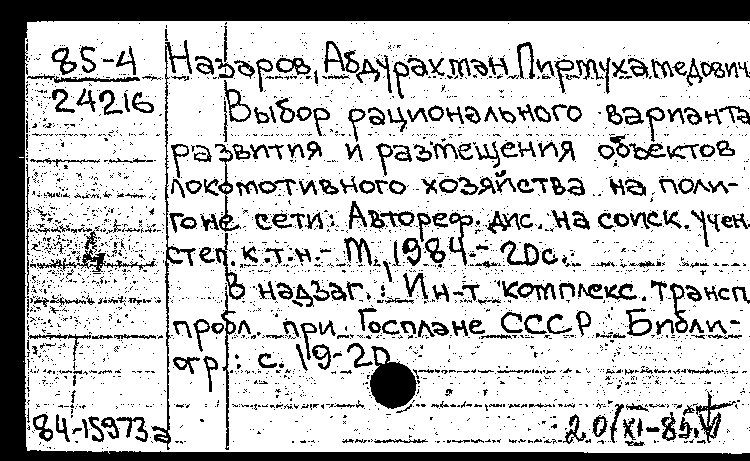 85-4
24216
Назаров, Абдурахман Пиртухамедович
Выбор рационального варианта
развития и размещения объектов
локомотивного хозяйства на поли-
гоне сети: Автореф. дис. на соиск. учен.
степ. к.т.н. - М., 1984. - 20с.
В надзаг.: Ин-т комплекс. трансп.
пробл. при Госплане СССР. Библи-
огр.: с. 19-20
84-15973а
2.0/XI-85.